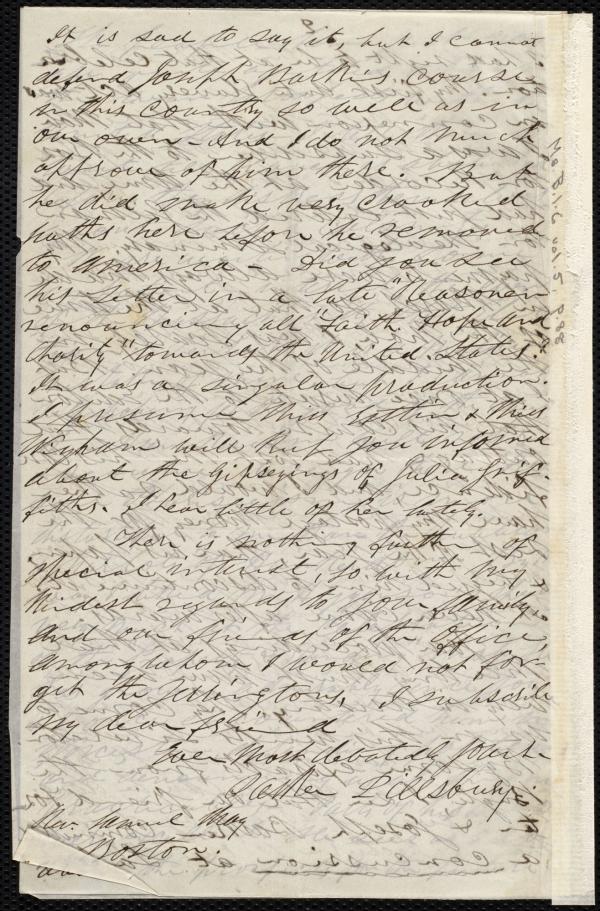 It is sad to say it, but I cannot
defend Joseph Barker's course
in this country so well as in
our own - And I do not much
approve of him there. But
he did make very crooked
paths here before he removed
to America - Did you see
his letter in a late "Reasoner"
renouncing all "Faith Hope and
Charity" towards the United States.
It was a singular production.
I presume Miss Estlin & Miss
Wigham will keep you informed
about the gipseyings of Julia Grif-
fiths. I hear little of her lately.
There is nothing further of
special interest, so with my
kindest regards to your family,
and our friends of the Office,
among whom I would not for-
get the Yerringtons, I subscribe
my dear friend
Ever most devotedly yours
Parker Pillsbury.
Rev. Samuel May
Boston.
Ms B.1.6 vol 5 p 88
a concussion at